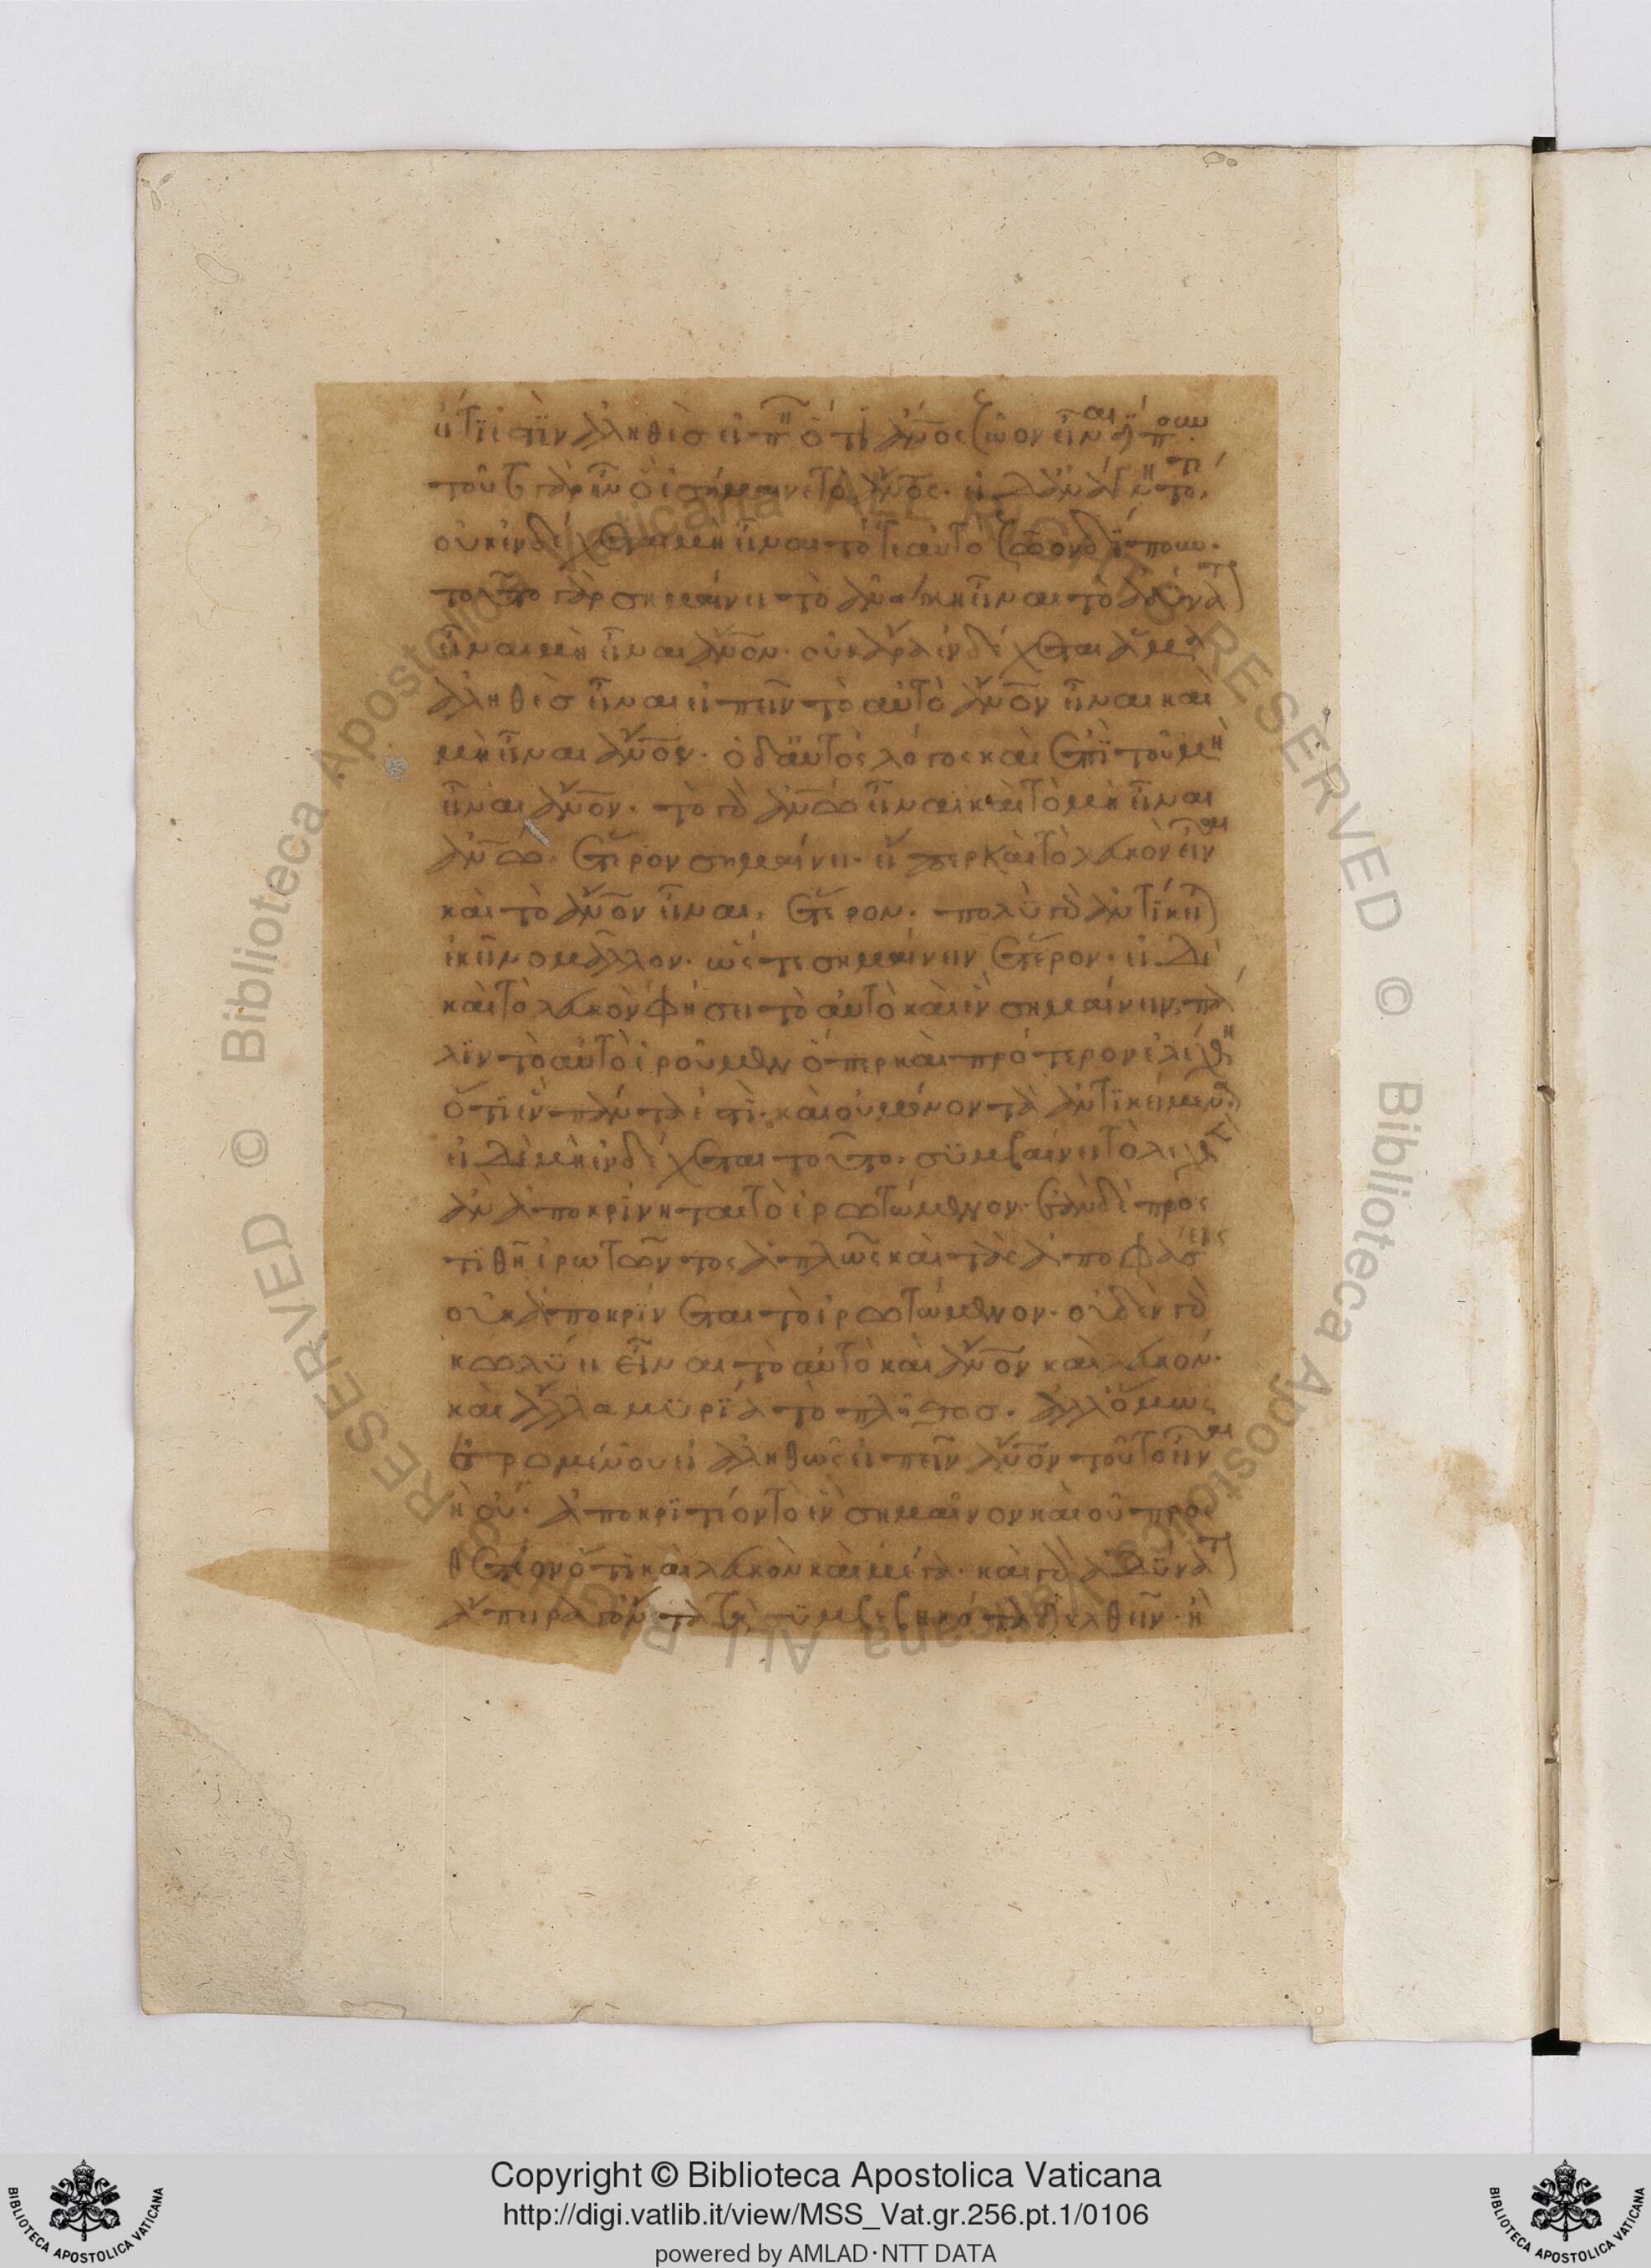 εἴ τί ἐστὶν ἀληθὲς εἰπεῖν ὅτι ἄν̅ος ζῶον εἶναι δίπουν.
τοῦτο γὰρ ἦν ὃ ἐσήμαινε τὸ ἄν̅ος· εἰ δ' ἀνάγκη τοῦτο,
οὐκ ἐνδέχεται μὴ εἶναι τότε αὐτὸ ζῶον δίπουν.
τοῦτο γὰρ σημαίνει τὸ ἀνάγκη εἶναι τὸ ἀδύνατον
εἶναι μὴ εἶναι ἄν̅ον· οὐκ ἄρα ἐνδέχεται ἅμα
ἀληθὲς εἶναι εἰπεῖν τὸ αὐτὸ ἄν̅ον εἶναι καὶ
μὴ εἶναι ἄν̅ον· ὁ δ' αὐτὸς λόγος καὶ ἐπὶ τοῦ μὴ
εἶναι ἄν̅ον· τὸ γὰρ ἀν̅ω εἶναι καὶ τὸ μὴ εἶναι
ἀν̅ω. ἕτερον σημαίνει· εἴπερ καὶ τὸ λευκὸν εἶναι
καὶ τὸ ἄν̅ον εἶναι, ἕτερον· πολὺ γὰρ ἀντίκειται
ἐκεῖνο μᾶλλον· ὥστε σημαίνειν ἕτερον· εἰ δὲ
καὶ τὸ λευκὸν φήσει τὸ αὐτὸ καὶ ἓν σημαίνειν, πά
λιν τὸ αὐτὸ ἐροῦμεν ὅπερ καὶ πρότερον ἐλέχθη
ὅτι ἓν πάντα ἐστὶ· καὶ οὐ μόνον τὰ ἀντικείμενα.
εἰ δὲ μὴ ἐνδέχεται τοῦτο, συμβαίνει τὸ λεχθέν
ἂν ἀποκρίνηται τὸ ἐρωτώμενον· ἐὰν δὲ προσ
τιθῆ ἐρωτῶντος ἁπλῶς καὶ τὰς ἀποφάσεις
οὐκ ἀποκρίνεται τὸ ἐρωτώμενον· οὐδὲν γὰρ
κωλύει εἶναι τὸ αὐτὸ καὶ ἄν̅ον καὶ λευκόν·
καὶ ἄλλα μυρία τὸ πλῆθος. ἀλλ' ὅμως
ἐρομένου εἰ ἀληθῶς εἰπεῖν ἄν̅ον τοῦτο εἶναι
ἢ οὔ· ἀποκριτέον τὸ ἓν σημαῖνον καὶ οὐ προσ
θετέον ὅτι καὶ λευκὸν καὶ μέγα· καὶ γὰρ ἀδύνατον
ἄπειρά γ' ὄντα τὰ συμβεβηκότα διελθεῖν· ἢ